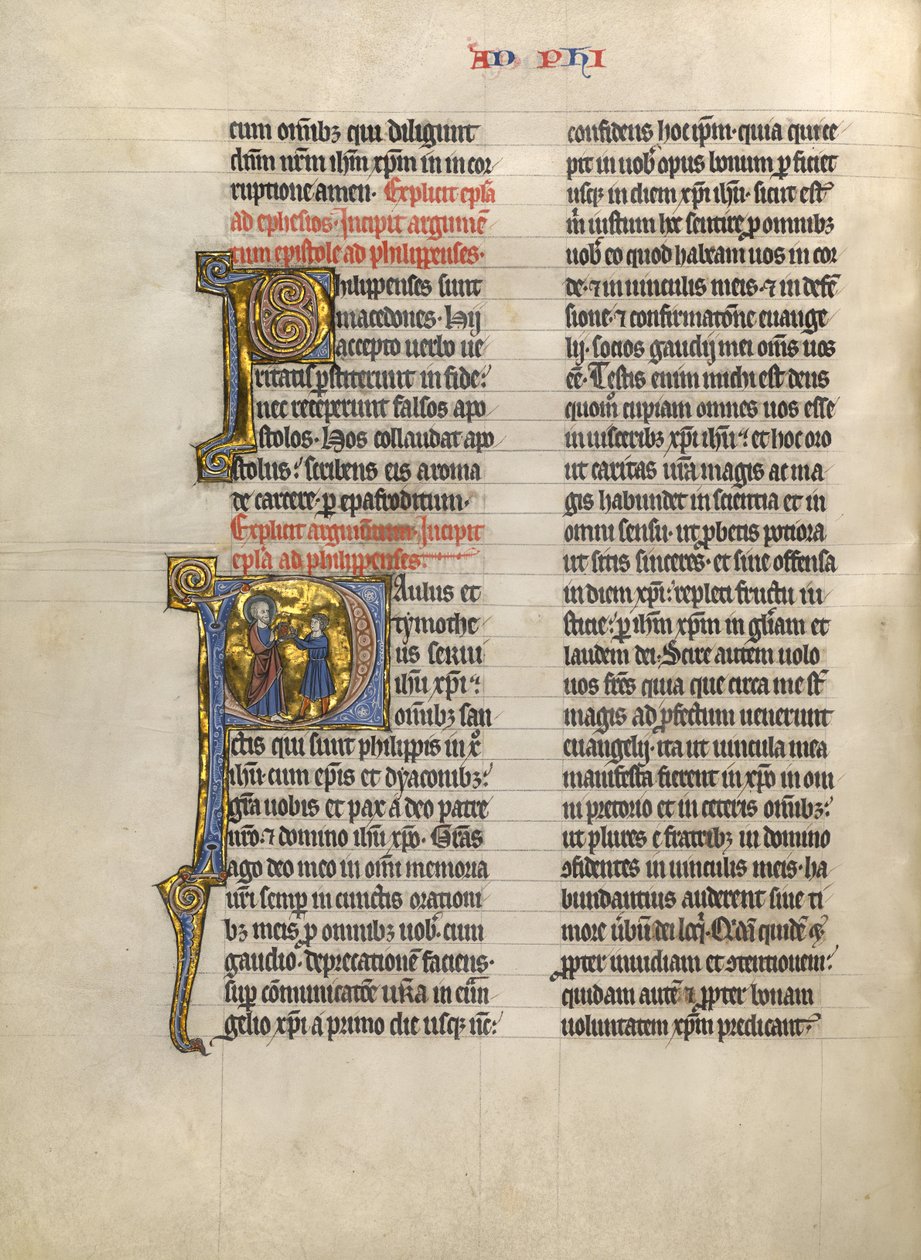 AD PHI
cum omĩbꝫ qui diligunt
dñm nr̃m ihm̃ xp̃m in in cor
ruptione amen· Explicit epl̃a
ad ephesios· Incipit argumẽ
tum epistole ad philippenses·
Philippenses sunt
macedones· Hij
accepto uerbo ue
ritatis ꝑstiterunt in fide:
nec receperunt falsos apo
stolos· Hos collaudat apo
stolus: scribens eis a roma
de carcere· ꝑ epafroditum·
Explicit argumentum· Incipit
epl̃a ad philippenses·
Paulus et
tymothe
us serui
ihũ xp̃i:
omĩbꝫ san
ctis qui sunt philippis in xp̃o
ihũ· cum ep̃is et dyaconibꝫ:
gr̃a uobis et pax a deo patre
nr̃o· ⁊ domino ihũ xp̃o· Gr̃as
ago deo meo in om̃i memoria
ur̃i semꝑ in cunctis orationi
bꝫ meis ꝑ omnibꝫ uob̃· cum
gaudio· deprecationẽ faciens·
suꝑ cõmunicatõe ur̃a in euã
gelio xp̃i a primo die usqꝫ nc̃:
confidens hoc ip̃m· quia qui ce
pit in uob̃ opus bonum ꝑficiet
usqꝫ in diem xp̃i ihũ· sicut est
m̃ iustum hec sentire ꝓ omnibꝫ
uob̃ eo quod habeam uos in cor
de· ⁊ in uinculis meis· ⁊ in defẽ
sione· ⁊ confirmatõne euange
lij· socios gaudij mei om̃s uos
eẽ· Testis enim michi est deus
quom̊ cupiam omnes uos esse
in uisceribꝫ xp̃i ihũ: et hoc oro
ut caritas ur̃a magis ac ma
gis habundet in scientia et in
omni sensu· ut ꝓbetis potiora
ut sitis sinceres· et sine offensa
in diem xp̃i: repleti fructu iu
sticie: ꝑ ihm̃ xp̃m in gl̃iam et
laudem dei· Scire autem uolo
uos fr̃es quia que circa me st̃
magis ad ꝓfectum uenerunt
euangelij· ita ut uincula mea
manifesta fierent in xp̃o in om
ni pretorio et in ceteris omĩbꝫ:
ut plures e fratribꝫ in domino
ꝯfidentes in uinculis meis· ha
bundantius auderent sine ti
more ũbũ dei loq̃i· Qd̃ã quidẽ ⁊
ꝓpter inuidiam et ꝯtentionem:
quidam autẽ ⁊ ꝓpter bonam
uoluntatem xp̃m predicant·